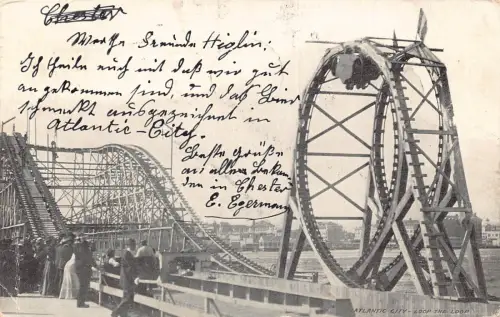 Chester
Werthe Freunde Higlin.
Ich theile euch mit daß wir gut
angekommen sind, und das Bier
schmeckt ausgezeichnet in
Atlantic-City.
Beste Grüße
an allen Bekan
den in Chester
E. Egermann
ATLANTIC CITY - LOOP THE LOOP